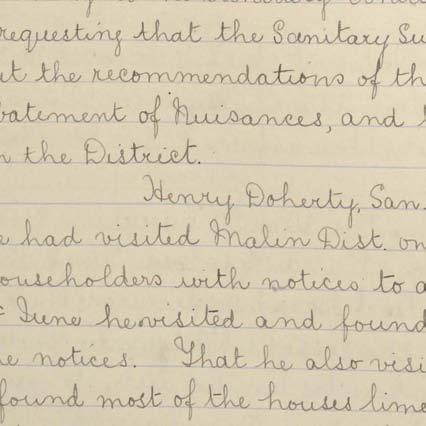 requesting that the Sanitary Su
ut the recommendations of th
batement of Nuisances, and
n the District.
Henry Doherty, San.
e had visited Malin Dist. on
ouseholders with notices to a
June he visited and found
e notices. That he also visi
found most of the houses lime